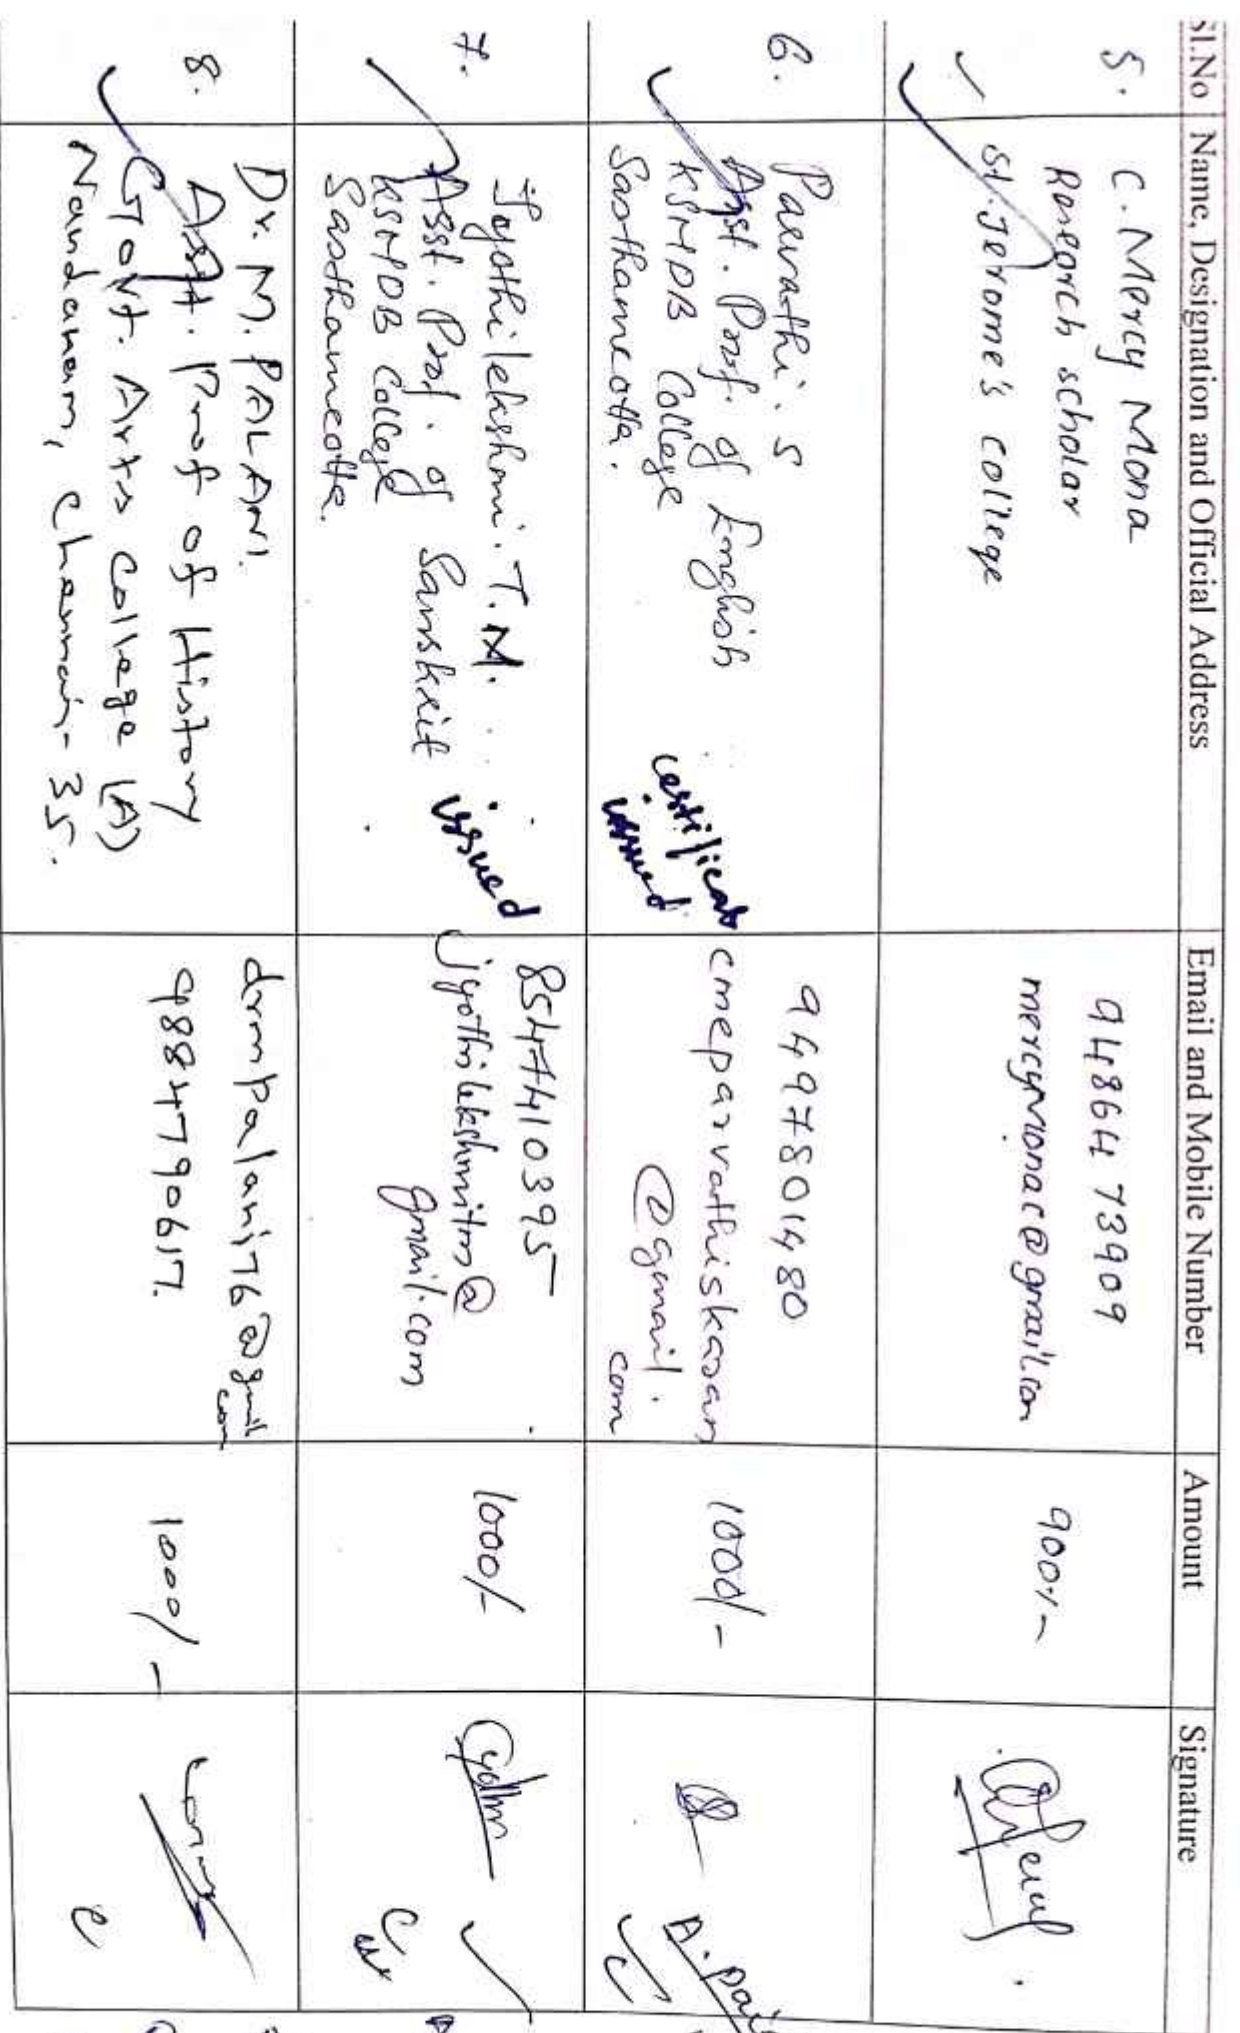 Sl.No Name, Designation and Official Address Email and Mobile Number Amount Signature
5. C. Mercy Mona
Research scholar
St. Jerome's college
9486473909
mercymonac@gmail.com
900/-
6. Parvathi. S
Asst. Prof. of English
KSMDB College
Sasthamcotta.
certificate
issued
9497801480
cmeparvathiskasam
@gmail.
com
1000/-
7. Jyothilekshmi. T.M.
Asst. Prof. of Sanskrit
KSMDB College
Sasthamcotta.
issued
8547410395
jyothilekshmitm@
gmail.com
1000/-
8. Dr. M. PALANI
Asst. Prof of History
Govt. Arts college (A)
Nandanam, Chennai-35.
drmpalani76@gmail
com
9884790617.
1000/-